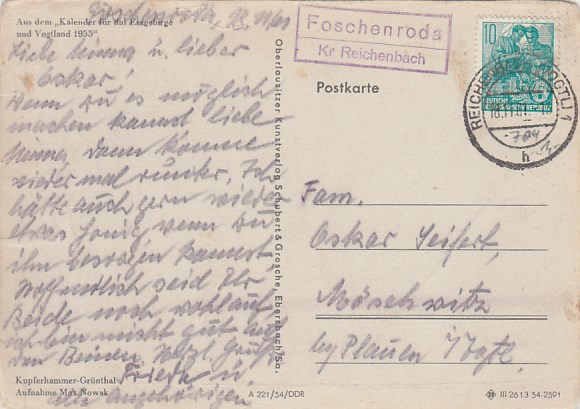 Aus dem „Kalender für das Erzgebirge
und Vogtland 1955“
Foschenroda,
Liebe Minna u. lieber
Oskar!
Wenn du es möglich
machen kannst liebe
Minna, dann komme
wieder mal runter. Ich
hätte auch gern wieder
etwas Honig wenn du
ihn besorgen kannst.
Hoffentlich seid Ihr
Beide noch wohlauf
ich bin nicht gut auf
den Beinen. Herzl. Grüße
Frieda u.
alle Angehörigen
Kupferhammer-Grünthal
Aufnahme Max Nowak
Oberlausitzer Kunstverlag Schubert & Grosche, Ebersbach/Sa.
A 221/54/DDR
Foschenroda
Kr Reichenbach
Postkarte
10
DEUTSCHE
REICHENBACH (VOGTL) 1
h
Fam.
Oskar Seifert,
Möschwitz
bey Plauen Vogtl.
III 26 13 54-2591